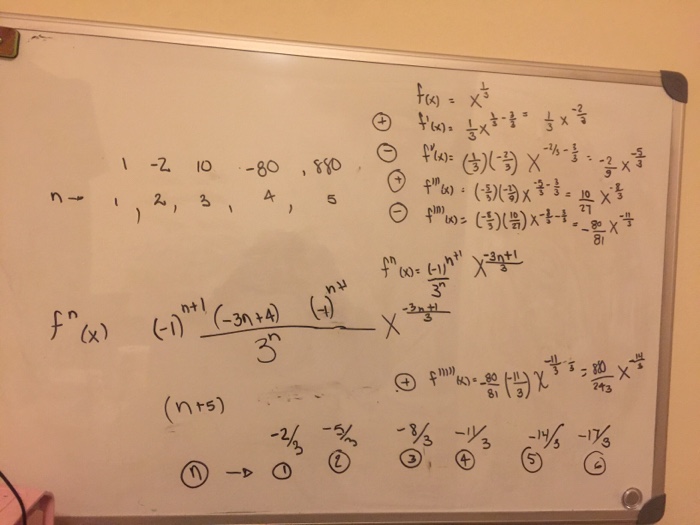 f(x) = x^{1/3}
⊕ f'(x) = 1/3 x^{1/3 - 3/3} = 1/3 x^{-2/3}
⊖ f''(x) = (1/3)(-2/3) x^{-2/3 - 3/3} = -2/9 x^{-5/3}
⊕ f'''(x) = (-5/3)(-2/9) x^{-5/3 - 3/3} = 10/27 x^{-8/3}
⊖ f''''(x) = (-8/3)(10/27) x^{-8/3 - 3/3} = -80/81 x^{-11/3}
1 -2 10 -80 , 880
n → 1 , 2 , 3 , 4 , 5
f^n(x) = (-1)^{n+1}/3^n x^{(-3n+1)/3}
f^n(x) (-1)^{n+1} (-3n+4) (-1)^{n+1} / 3^n x^{(-3n+1)/3}
⊕ f'''''(x) = -80/81 (-11/3) x^{-11/3 - 3/3} = 880/243 x^{-14/3}
(n+5)
-2/3 -5/3 -8/3 -11/3 -14/3 -17/3
ⓝ → ① ② ③ ④ ⑤ ⑥